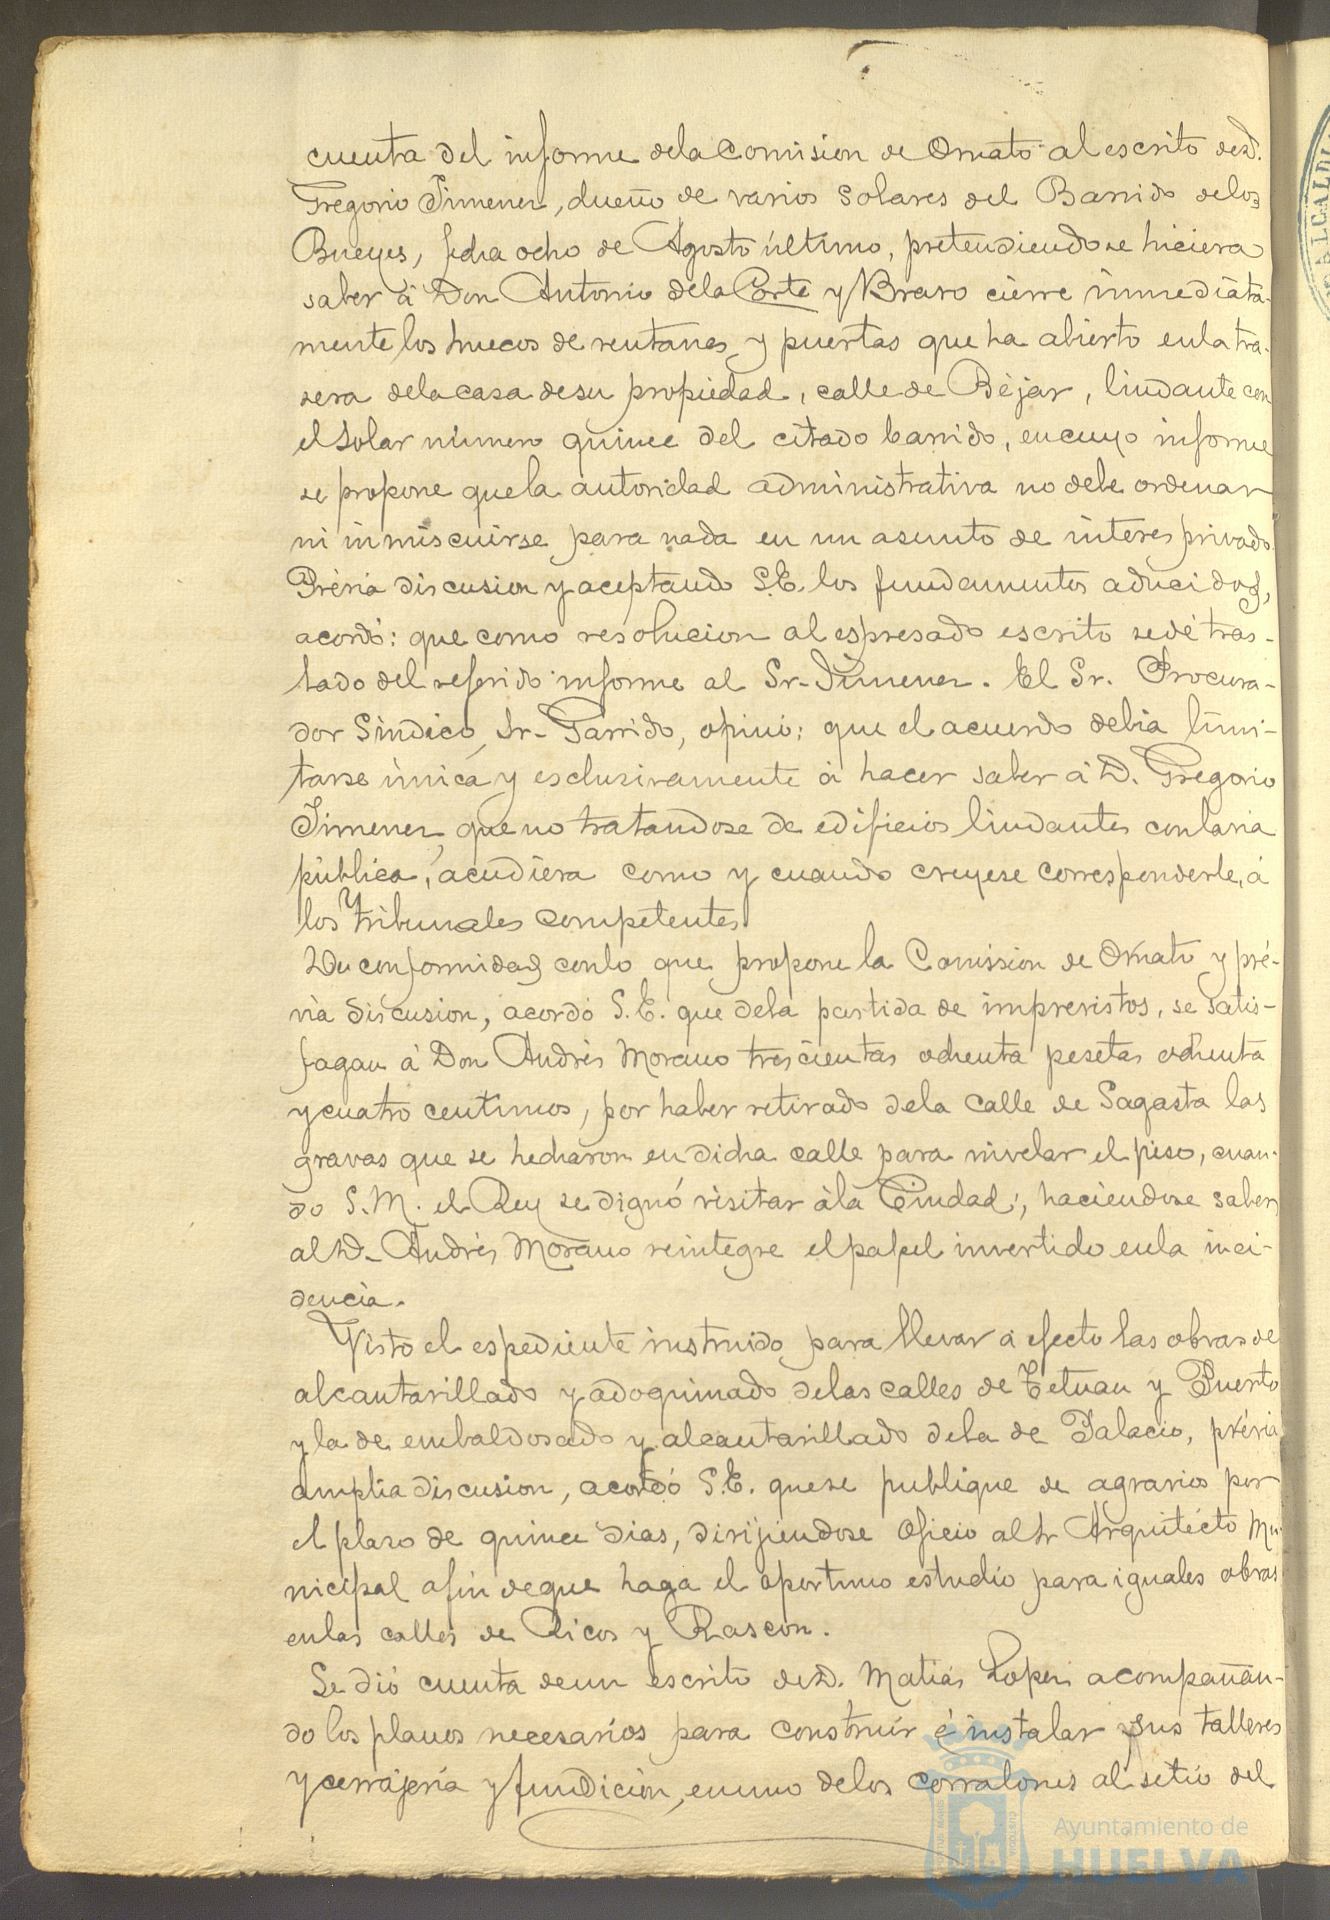 cuenta del informe dela Comision de Ornato al escrito de D.
Gregorio Jimenez, dueño de varios solares del Barrido delos
Bueyes, fecha ocho de Agosto último, pretendiendo se hiciera
saber á Don Antonio dela Corte y Bravo cierre inmediata-
mente los huecos de ventanas y puertas que ha abierto enla tra-
sera dela casa desu propiedad, calle de Béjar, lindante con
el solar número quince del citado barrido, encuyo informe
se propone quela autoridad administrativa no debe ordenar
ni inmiscuirse para nada en un asunto de interes privado.
Prévia discusion y aceptando S.E. los fundamentos aducidos,
acordó: que como resolucion al espresado escrito sedé tras-
lado del referido informe al Sr. Jimenez. El Sr. Procura-
dor Síndico, Sr. Garrido, opinó: que el acuerdo debia limi-
tarse única y esclusivamente á hacer saber á D. Gregorio
Jimenez, que no tratandose de edificios lindantes conlavia
pública, acudiera como y cuando creyese corresponderle, á
los Tribunales competentes.
De conformidad conlo que propone la Comision de Ornato y pré-
via discusion, acordó S.E. que dela partida de imprevistos, se satis-
fagan á Don Andrés Morano trescientas ochenta pesetas ochenta
y cuatro centimos, por haber retirado dela calle de Sagasta las
gravas que se hecharon en dicha calle para nivelar el piso, cuan-
do S.M. el Rey se dignó visitar ála Ciudad; haciendose saber
al D. Andrés Morano reintegre el papel invertido enla inci-
dencia.
Visto el espediente instruido para llevar á efecto las obras de
alcantarillado y adoquinado delas calles de Tetuan y Puerto
y la de embaldosado y alcantarillado dela de Palacio, prévia
amplia discusion, acordó S.E. quese publique de agravios por
el plazo de quince dias, dirijiendose oficio al Sr Arquitécto Mu-
nicipal afin deque haga el oportuno estudio para iguales obras
enlas calles de Ricos y Rascon.
Se dió cuenta deun escrito de D. Matías Lopez acompañan-
do los planos necesarios para construir é instalar sus talleres
y cerrajería y fundición, enuno delos corralones al sitio del
ALCALDIA
Ayuntamiento de
HUELVA